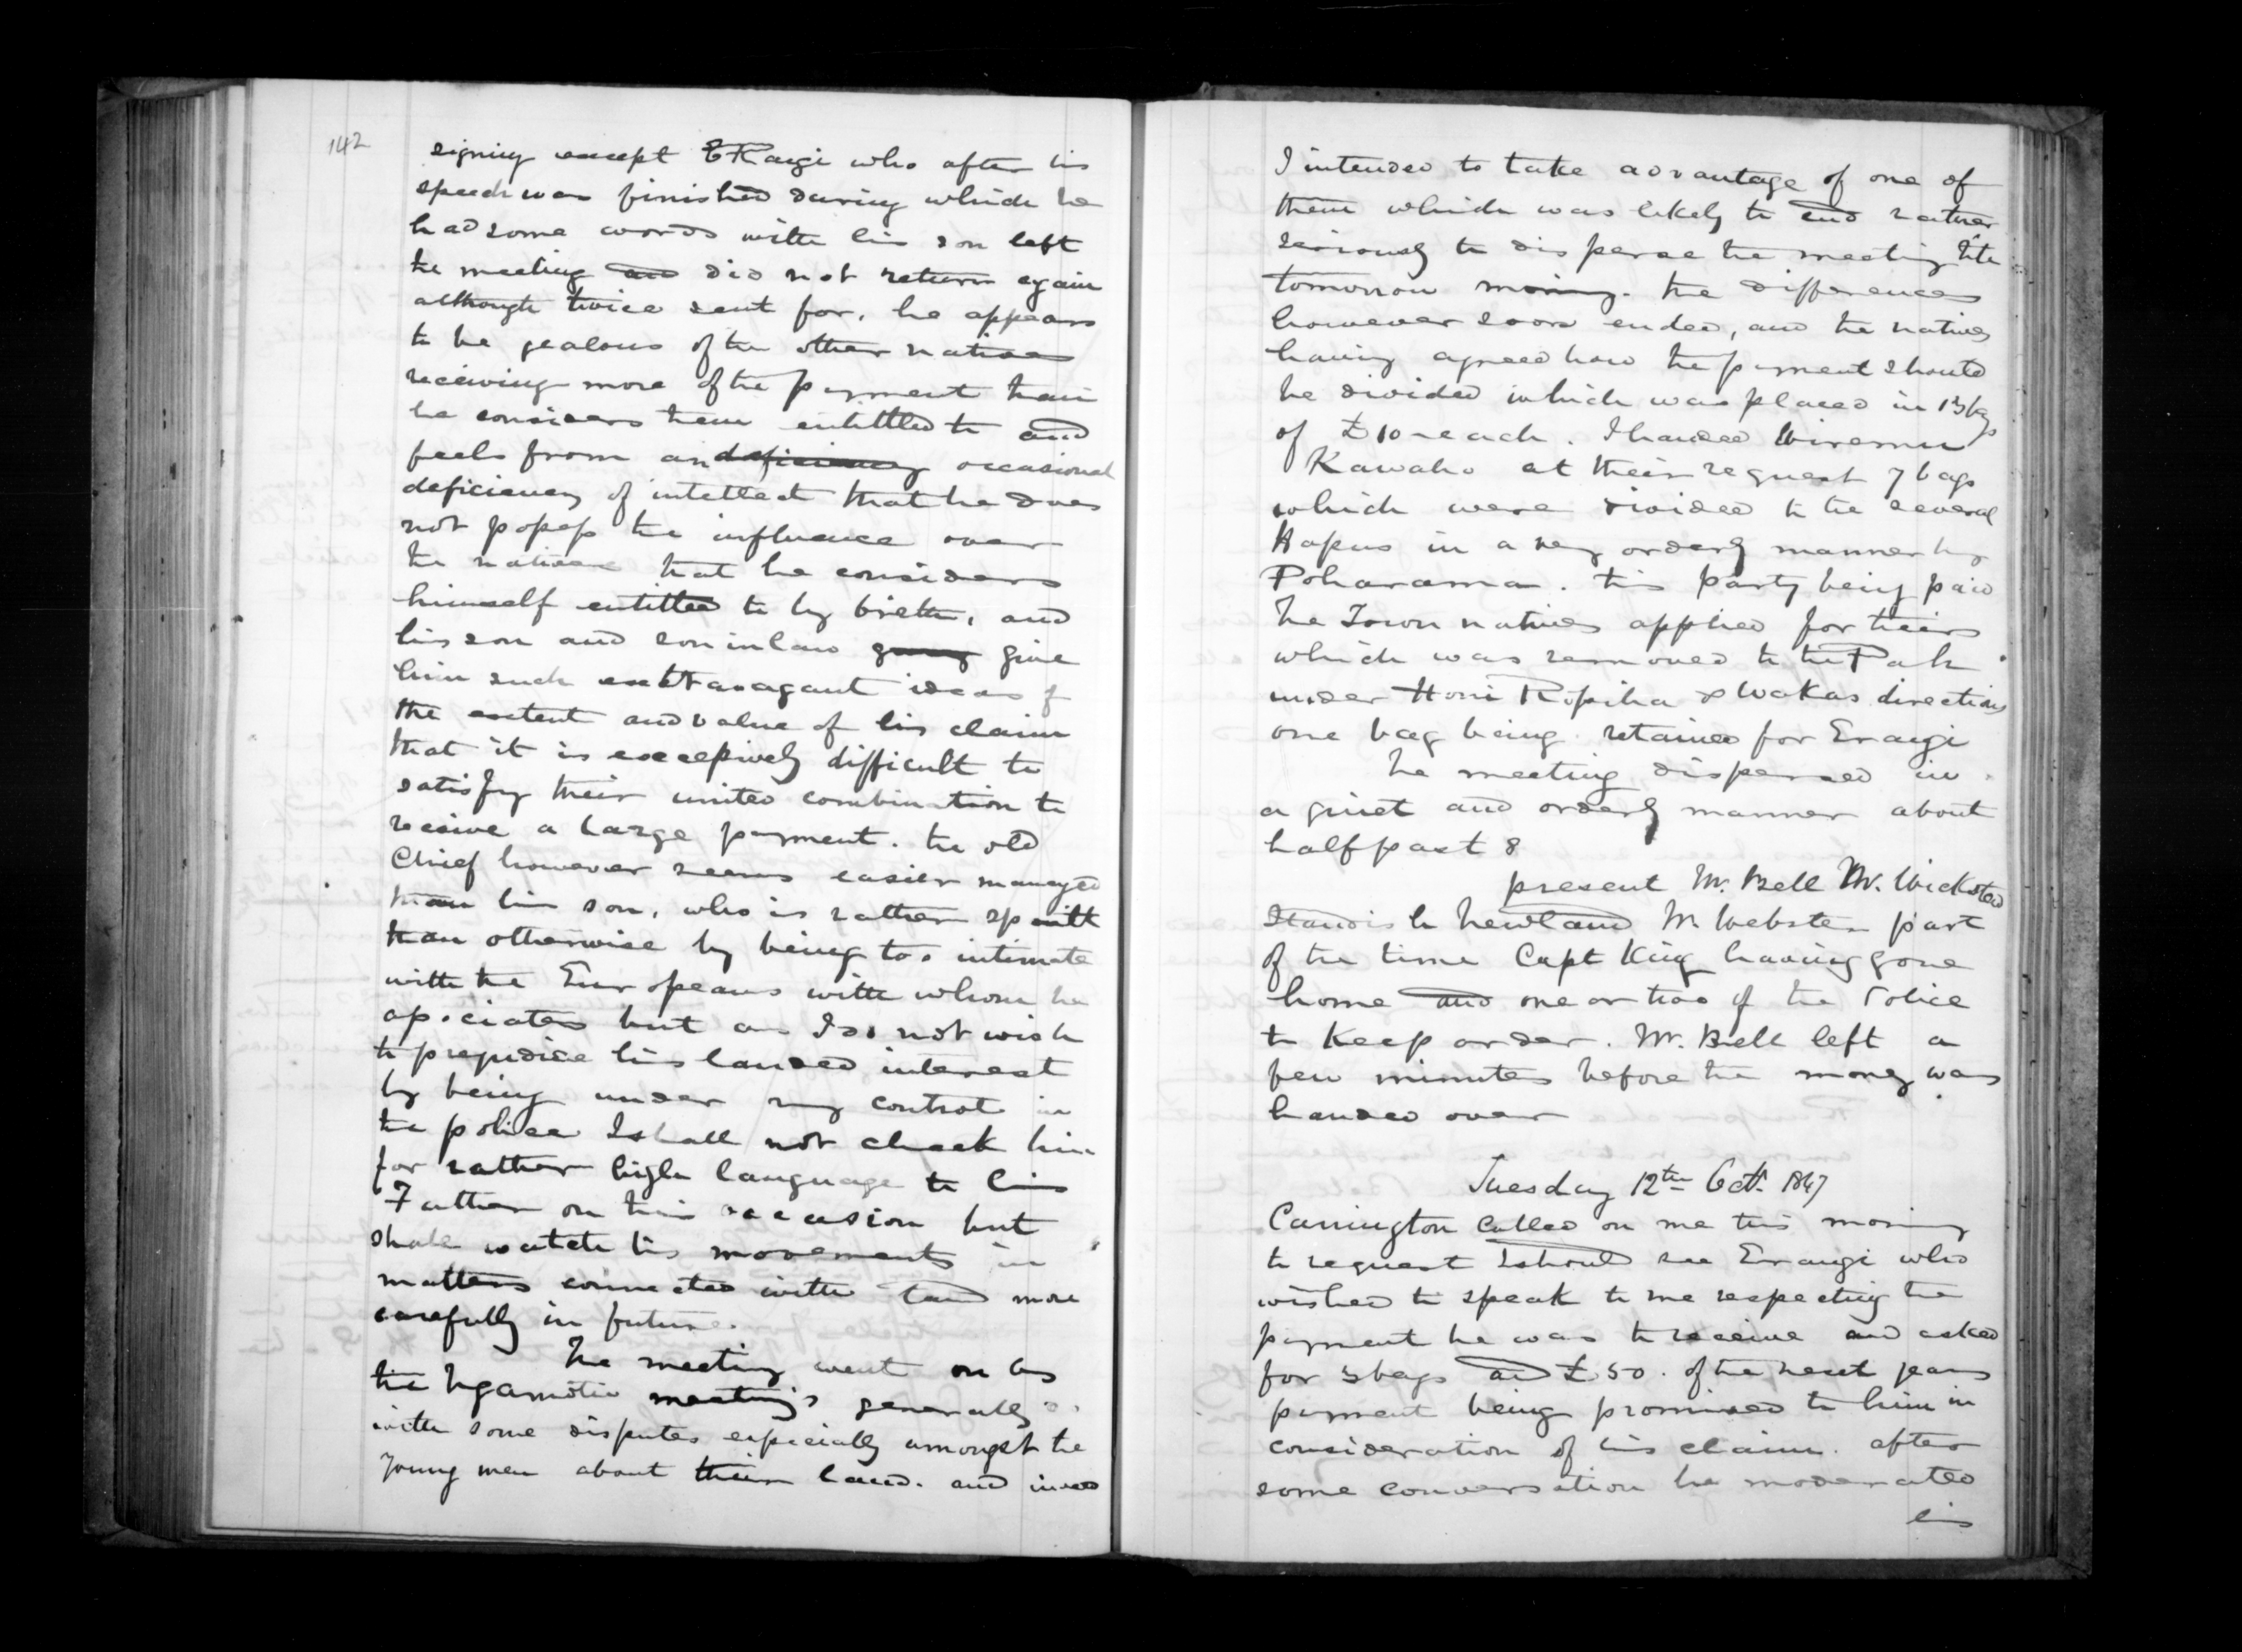 142
signing except E Rangi who after his
speech was finished during which he
had some words with his son left
the meeting and did not return again
although twice sent for, he appears
to be jealous of the other natives
receiving more of the payment than
he considers them entitled to and
feels from an deficiency occasional
deficiency of intellect that he does
not possess the influence over
the natives that he considers
himself entitled to by birth, and
his son and son in law giving give
him such extravagant ideas of
the extent and value of his claim
that it is excessively difficult to
satisfy their united combination to
receive a large payment. the old
Chief however seems easier managed
than his son, who is rather spoilt
than otherwise by being too intimate
with the Europeans with whom he
associates but as I do not wish
to prejudice his landed interest
by being under my control in
the police I shall not check him
for rather high language to his
Father on this occasion but
shall watch his movements in
matters connected with land more
carefully in future.
The meeting went on as
the Ngamotu meetings generally do
with some disputes especially amongst the
young men about their land. and indeed
I intended to take advantage of one of
them which was likely to end rather
seriously to disperse the meeting till
tomorrow morning. the differences
however soon ended, and the natives
having agreed how the payment should
be divided which was placed in 13 bags
of £10 each. I handed Wiremu
Kawaho at their request 7 bags
which were divided to the several
Hapus in a very orderly manner by
Poharama. this party being paid
the Town natives applied for theirs
which was removed to the Pah
under Honi Ropiha & Wakas directions
one bag being retained for Erangi
The meeting dispersed in
a quiet and orderly manner about
half past 8
present Mr. Bell Mr. Wicksteed
Standish Newland Mr Webster part
of the time Capt King having gone
home and one or two of the Police
to keep order. Mr. Bell left a
few minutes before the money was
handed over
Tuesday 12th Oct. 1847
Carrington called on me this morning
to request I should see Erangi who
wished to speak to me respecting the
payment he was to receive and asked
for 3 bags and £50. of the next years
payment being promised to him in
consideration of his claim. after
some conversation he moderated
his